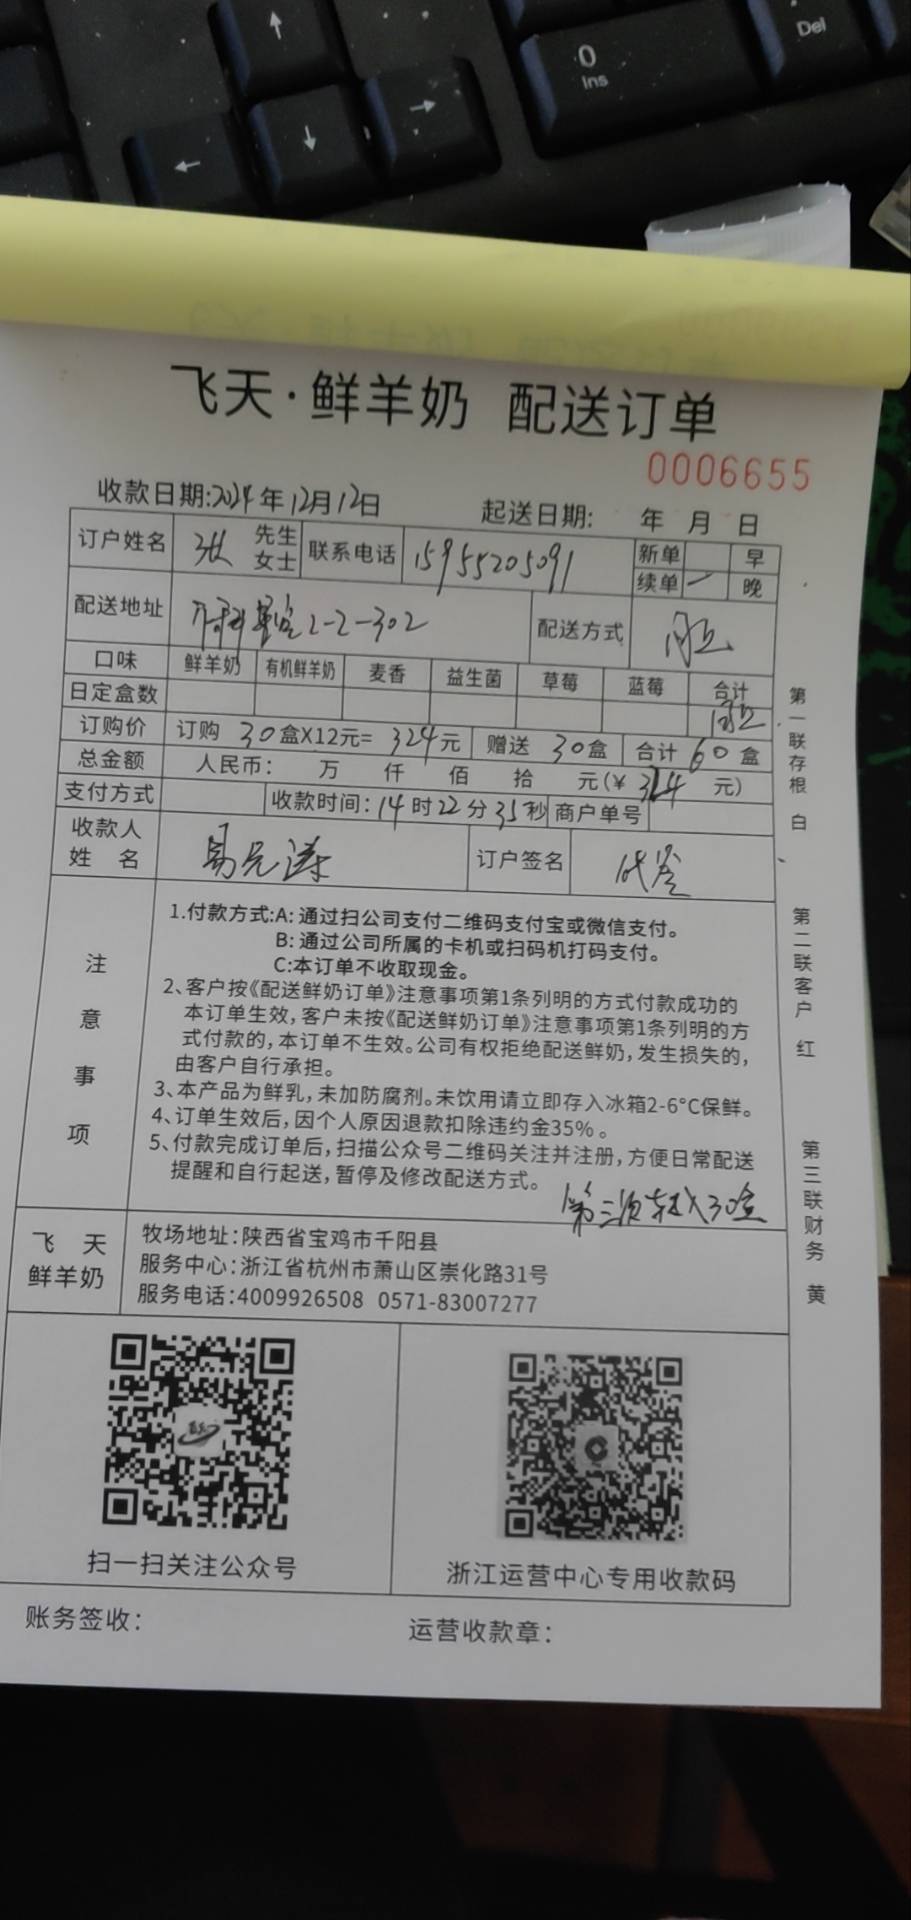 0
Ins
Del
飞天·鲜羊奶 配送订单
0006655
收款日期:2024年12月12日 起送日期: 年 月 日
订户姓名 张 先生 女士 联系电话 15955205091 新单 早
续单 一 晚
配送地址 2-2-302 配送方式
口味 鲜羊奶 有机鲜羊奶 麦香 益生菌 草莓 蓝莓 合计
日定盒数
订购价 订购 30盒X12元= 324元 赠送 30盒 合计 60盒
总金额 人民币: 万 仟 佰 拾 元(¥ 324 元)
支付方式 收款时间:14时22分35秒 商户单号
收款人姓名 订户签名 代签
注意事项
1.付款方式:A: 通过扫公司支付二维码支付宝或微信支付。
B: 通过公司所属的卡机或扫码机打码支付。
C:本订单不收取现金。
2、客户按《配送鲜奶订单》注意事项第1条列明的方式付款成功的
本订单生效,客户未按《配送鲜奶订单》注意事项第1条列明的方
式付款的,本订单不生效。公司有权拒绝配送鲜奶,发生损失的,
由客户自行承担。
3、本产品为鲜乳,未加防腐剂。未饮用请立即存入冰箱2-6°C保鲜。
4、订单生效后,因个人原因退款扣除违约金35%。
5、付款完成订单后,扫描公众号二维码关注并注册,方便日常配送
提醒和自行起送,暂停及修改配送方式。
第三项 30盒
飞天鲜羊奶
牧场地址:陕西省宝鸡市千阳县
服务中心:浙江省杭州市萧山区崇化路31号
服务电话:4009926508 0571-83007277
扫一扫关注公众号
浙江运营中心专用收款码
账务签收:
运营收款章:
第一联存根 白
第二联客户 红
第三联财务 黄